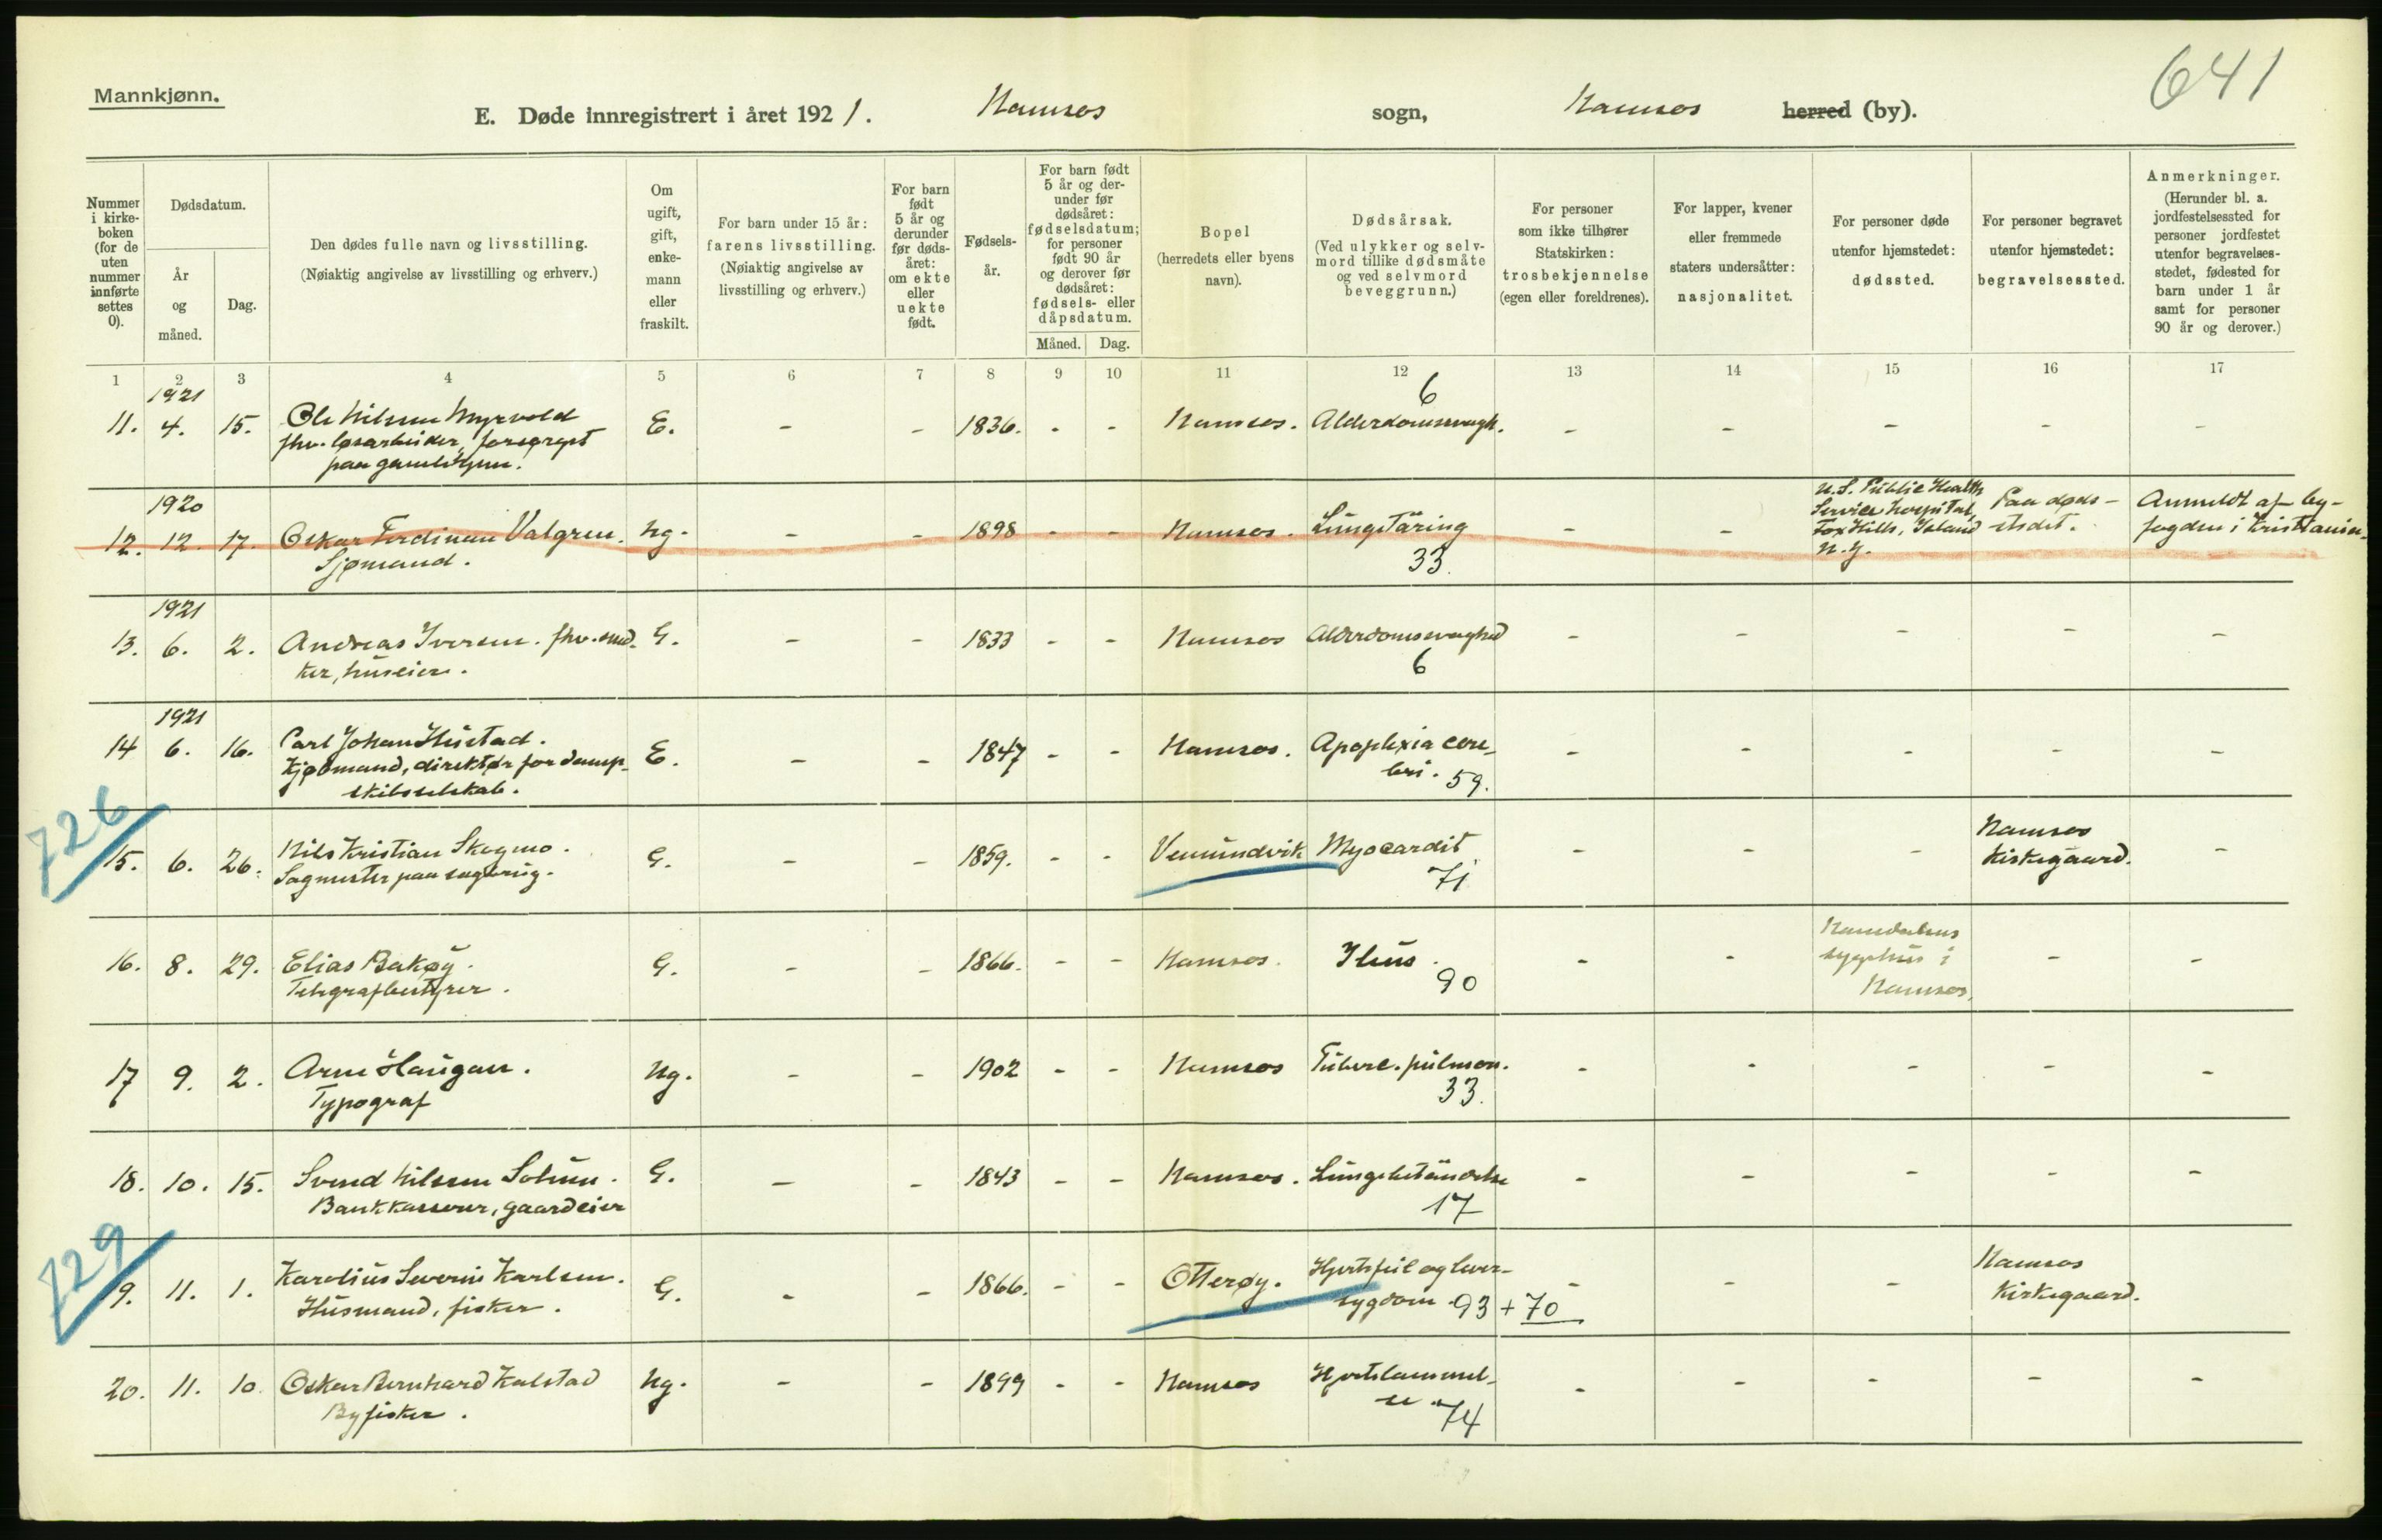 Mannkjønn.
641
E. Døde innregistrert i året 1921. Namsos sogn, Namsos herred (by).
Nummer i kirkeboken (for de uten nummer innførte settes 0).
Dødsdatum.
År og måned.
Dag.
Den dødes fulle navn og livsstilling.
(Nøiaktig angivelse av livsstilling og erhverv.)
Om ugift, gift, enkemann eller fraskilt.
For barn under 15 år: farens livsstilling.
(Nøiaktig angivelse av livsstilling og erhverv.)
For barn født 5 år og derunder før dødsåret: om ekte eller uekte født.
Fødselsår.
For barn født 5 år og derunder før dødsåret: fødselsdatum; for personer født 90 år og derover før dødsåret: fødsels- eller dåpsdatum.
Måned. Dag.
Bopel
(herredets eller byens navn).
Dødsårsak.
(Ved ulykker og selvmord tillike dødsmåte og ved selvmord beveggrunn.)
For personer som ikke tilhører Statskirken: trosbekjennelse (egen eller foreldrenes).
For lapper, kvener eller fremmede staters undersåtter: nasjonalitet.
For personer døde utenfor hjemstedet: dødssted.
For personer begravet utenfor hjemstedet: begravelsessted.
Anmerkninger.
(Herunder bl. a. jordfestelsessted for personer jordfestet utenfor begravelsesstedet, fødested for barn under 1 år samt for personer 90 år og derover.)
1 2 3 4 5 6 7 8 9 10 11 12 13 14 15 16 17
1921
6
11. 4. 15. Ole Nilsen Myrvold E. - - 1836. - - Namsos. Alderdomssvagh. - - - - -
fhv. løsarbeider, forsørget
paa gamlehjem.
1920
12. 12. 17. Oskar Ferdinan Valgren. Ug. - - 1898 - - Namsos. Lungetäring - - U.S. Public Health Service Hospital, Fox Hills, Island N.Y. Paa dødsstedet. Anmeldt af byfogden i Kristiania.
Sjømand.
33.
1921
13. 6. 2. Andreas Iversen. fhv. sned- G. - - 1833 - - Namsos Alderdomssvaghed - - - - -
ker, huseier.
6
1921
14 6. 16. Carl Johan Hustad. E. - - 1847 - - Namsos. Apoplexia cere- - - - - -
Kjøbmand, direktør for damp-
skibsselskab.
bri. 59.
726
15. 6. 26. Nils Kristian Skogmo. G. - - 1859. - - Vemundvik Myocardit - - - Namsos Kirkegaard. -
Sagmester paa sagbrug.
71
16. 8. 29. Elias Bakøy. G. - - 1866. - - Namsos. Ileus. - - Namdalens sygehus i Namsos. - -
Telegrafbestyrer.
90
17 9. 2. Arne Haugan. Ug. - - 1902 - - Namsos Tuberc. pulmon. - - - - -
Typograf
33.
18. 10. 15. Svend Nilssen Solum. G. - - 1843 - - Namsos. Lungebetändelse - - - - -
Bankkasserer, gaardeier
17
729
19. 11. 1. Karolius Severin Karlsen. G. - - 1866. - - Otterøy. Hjertefeil og lever- - - - Namsos Kirkegaard.
Husmand, fisker.
sygdom 93 + 70
20. 11. 10. Oskar Bernhard Kalstad Ug. - - 1899 - - Namsos Hjertelammel- - - - - -
Byfisker.
se. 74